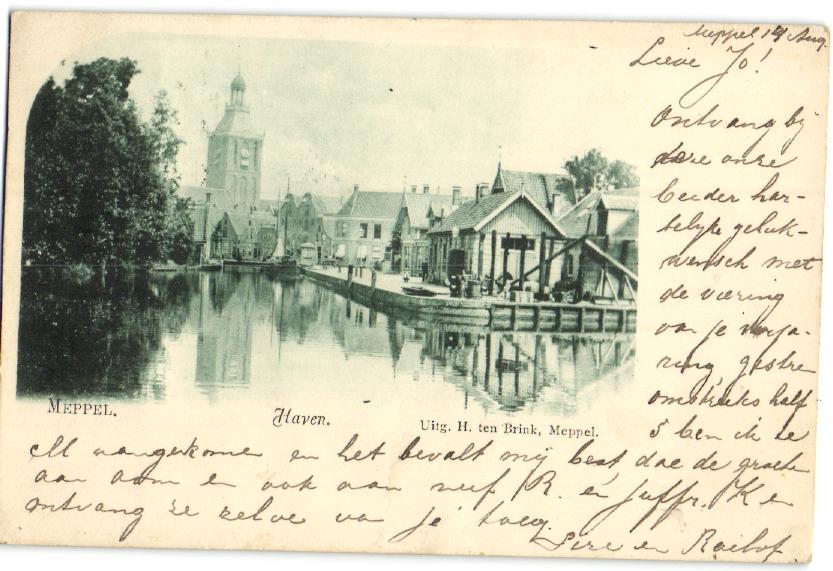 Meppel 14 Aug.
Lieve Jo!
Ontvang bij
deze onze
beider har-
telijke geluk-
wensch met
de viering
van je verja-
ring, gistre
omstreeks half
5 ben ik te
M aangekome en het bevalt mij best doe de groete
aan oom en ook aan neef R. en Juffr. K en
ontvang ze zelve van je
en Roelof
MEPPEL.
Haven.
Uitg. H. ten Brink, Meppel.